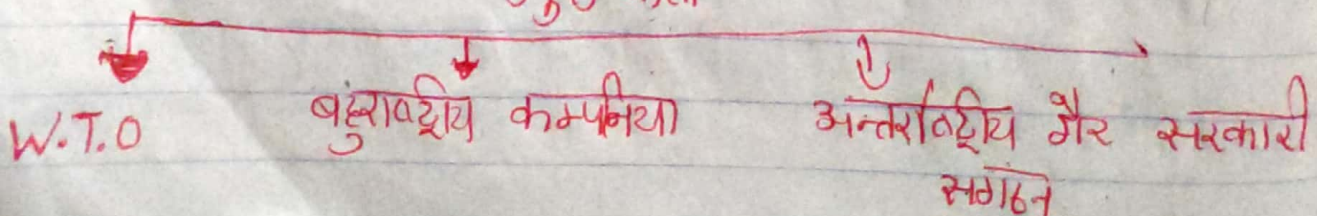 W.T.O बहुराष्ट्रीय कम्पनिया अन्तर्राष्ट्रीय गैर सरकारी
सगठन